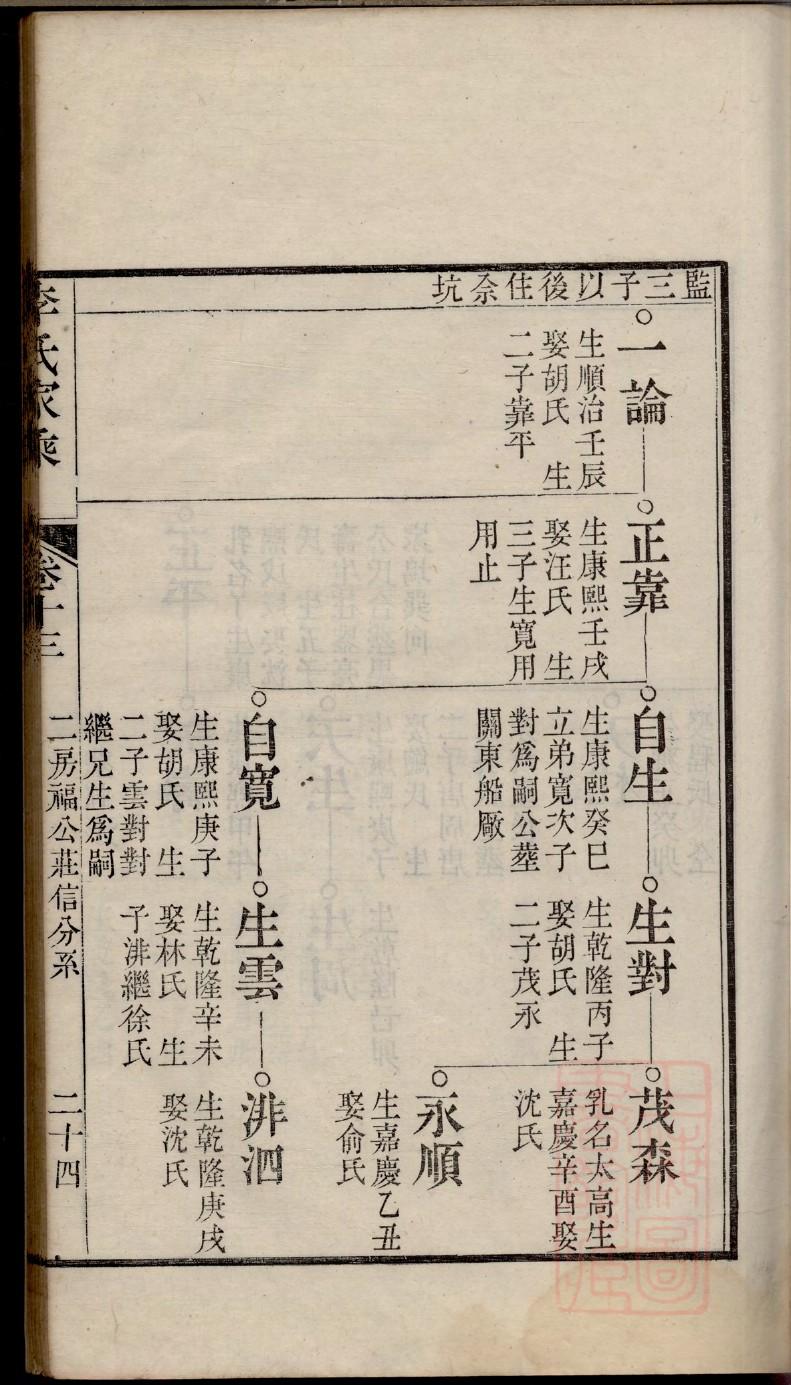 監三子以後住佘坑
一論
生順治壬辰
娶胡氏 生
二子靠平
正靠
生康熙壬戌
娶汪氏 生
三子生寬用
用止
自生
生康熙癸巳
立弟寬次子
對爲嗣公塟
關東船厰
生對
生乾隆丙子
娶胡氏 生
二子茂永
茂森
乳名太高生
嘉慶辛酉娶
沈氏
永順
生嘉慶乙丑
娶俞氏
自寬
生康熙庚子
娶胡氏 生
二子雲對對
繼兄生爲嗣
生雲
生乾隆辛未
娶林氏 生
子渄繼徐氏
渄泗
生乾隆庚戌
娶沈氏
李氏家乘
卷十三
二房福公莊信分系
二十四